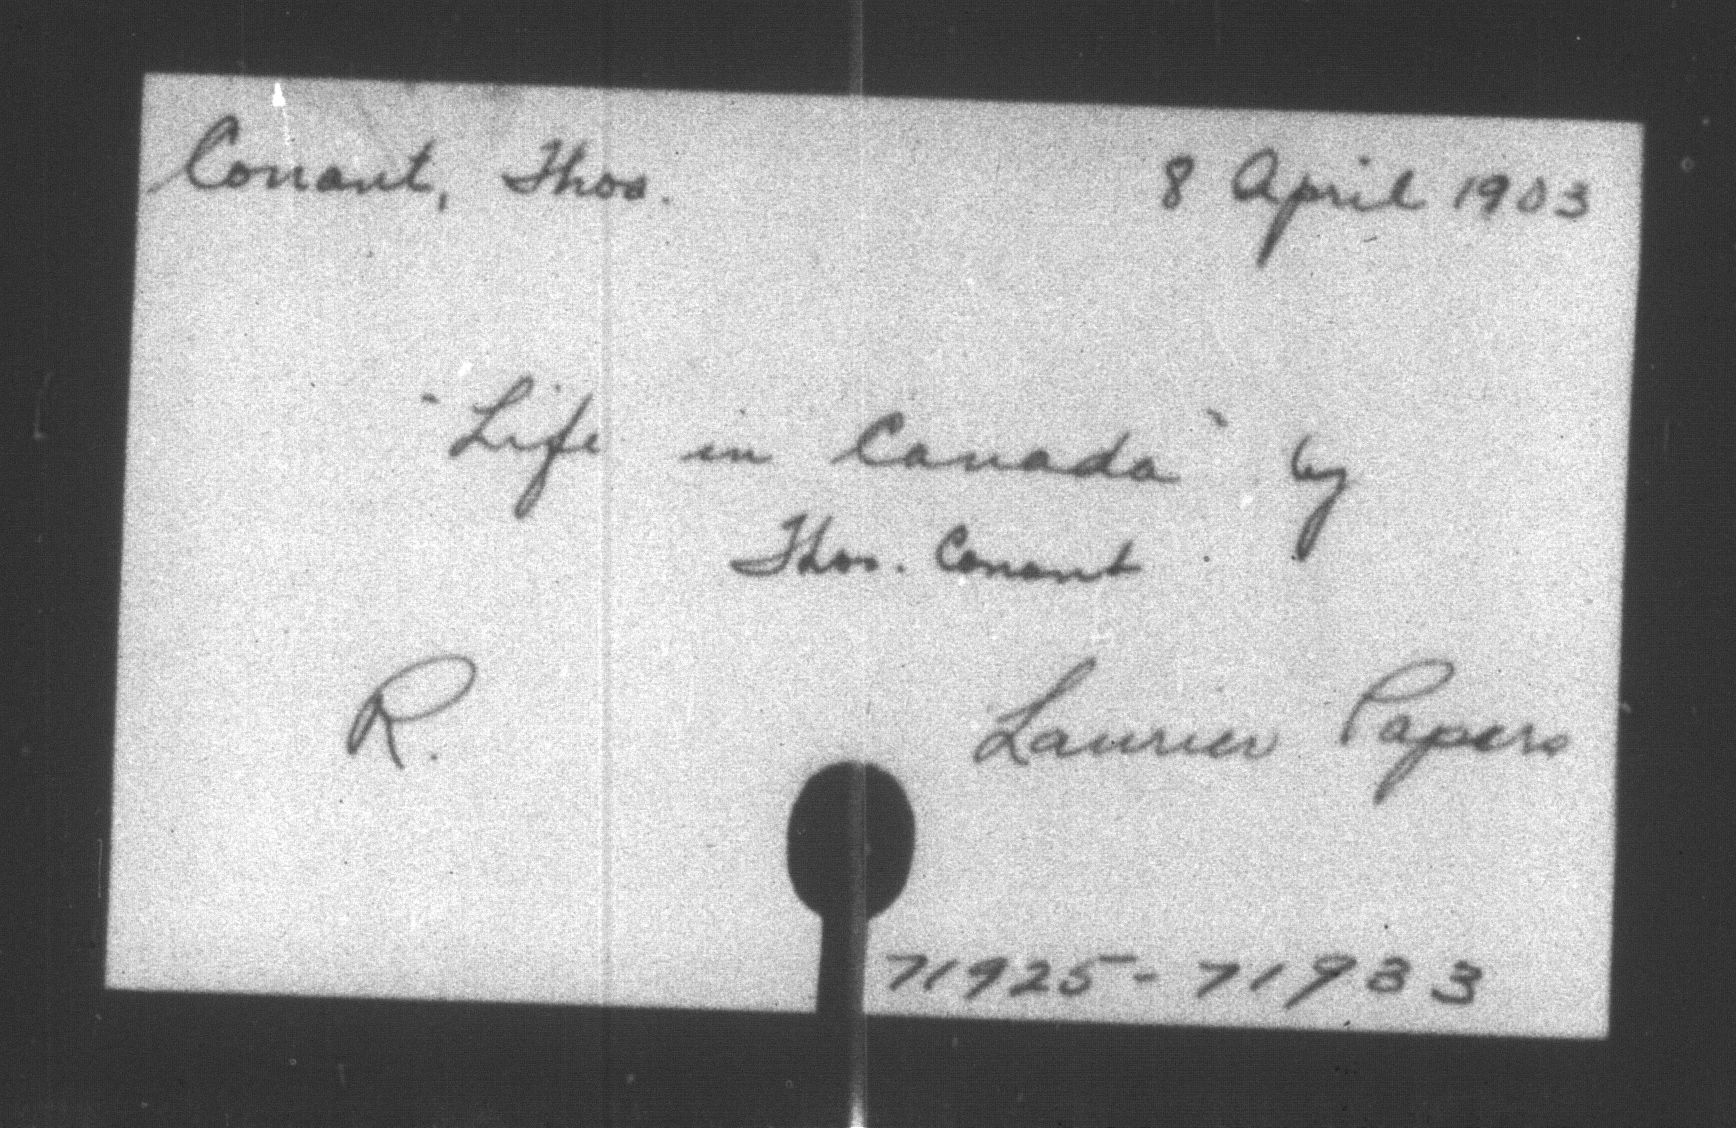 Conant, Thos. 8 April 1903
"Life in Canada" by
Thos. Conant
R. Laurier Papers
71925-71933